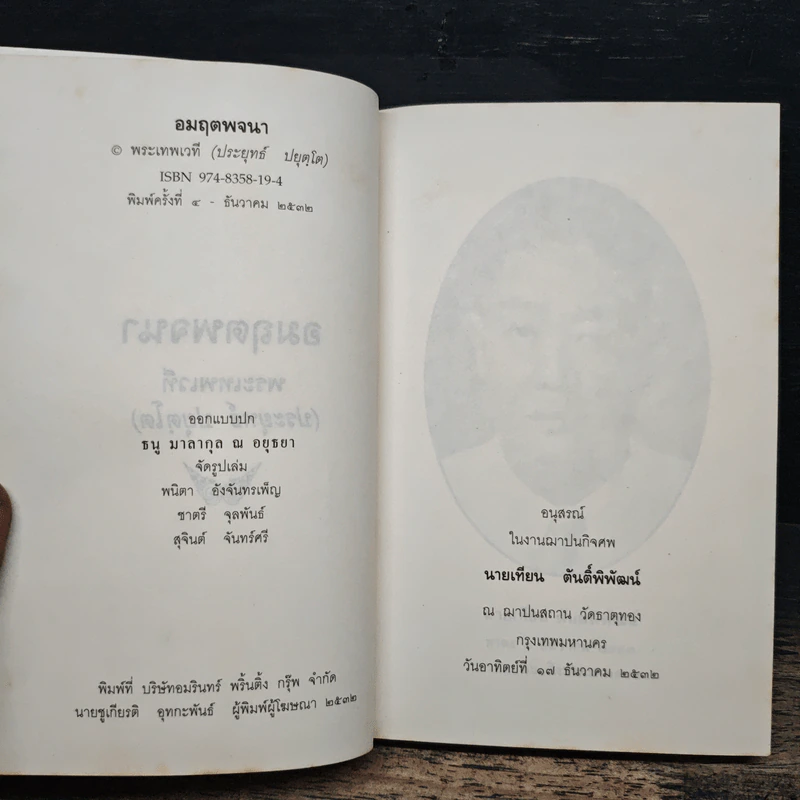 อมฤตพจนา
© พระเทพเวที (ประยุทธ์ ปยุตฺโต)
ISBN 974-8358-19-4
พิมพ์ครั้งที่ ๔ - ธันวาคม ๒๕๓๒
อมฤตพจนา
พระเทพเวที
(ประยุทธ์ ปยุตฺโต)
ออกแบบปก
ธนู มาลากุล ณ อยุธยา
จัดรูปเล่ม
พนิตา อังจันทรเพ็ญ
ชาตรี จุลพันธ์
สุจินต์ จันทร์ศรี
พิมพ์ที่ บริษัทอมรินทร์ พริ้นติ้ง กรุ๊พ จำกัด
นายชูเกียรติ อุทกะพันธ์ ผู้พิมพ์ผู้โฆษณา ๒๕๓๒
อนุสรณ์
ในงานฌาปนกิจศพ
นายเทียน ตันติ์พิพัฒน์
ณ ฌาปนสถาน วัดธาตุทอง
กรุงเทพมหานคร
วันอาทิตย์ที่ ๑๗ ธันวาคม ๒๕๓๒